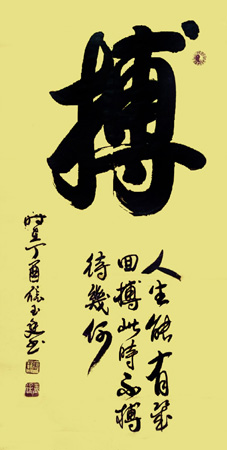 搏
人生能有幾
回搏此时不搏
待幾何
时在丁酉張玉廷书